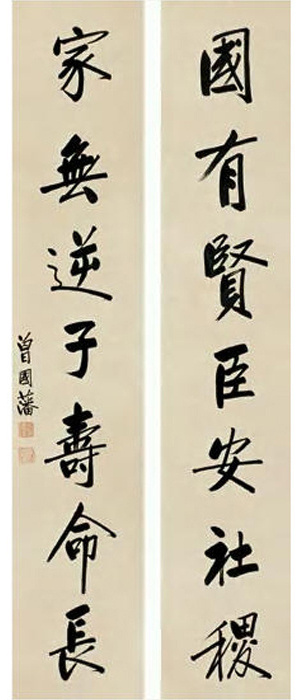 國有賢臣安社稷
家無逆子壽命長
曾國藩